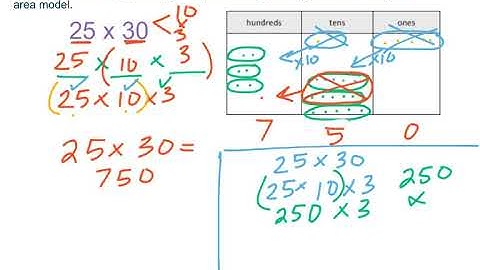 area model.
25 x 30 < 10
3
25 x (10 x 3)
(25 x 10) x 3
25 x 30 =
750
hundreds tens ones
x10 x10
7 5 0
25 x 30
(25 x 10) x 3
250 x 3
250
x